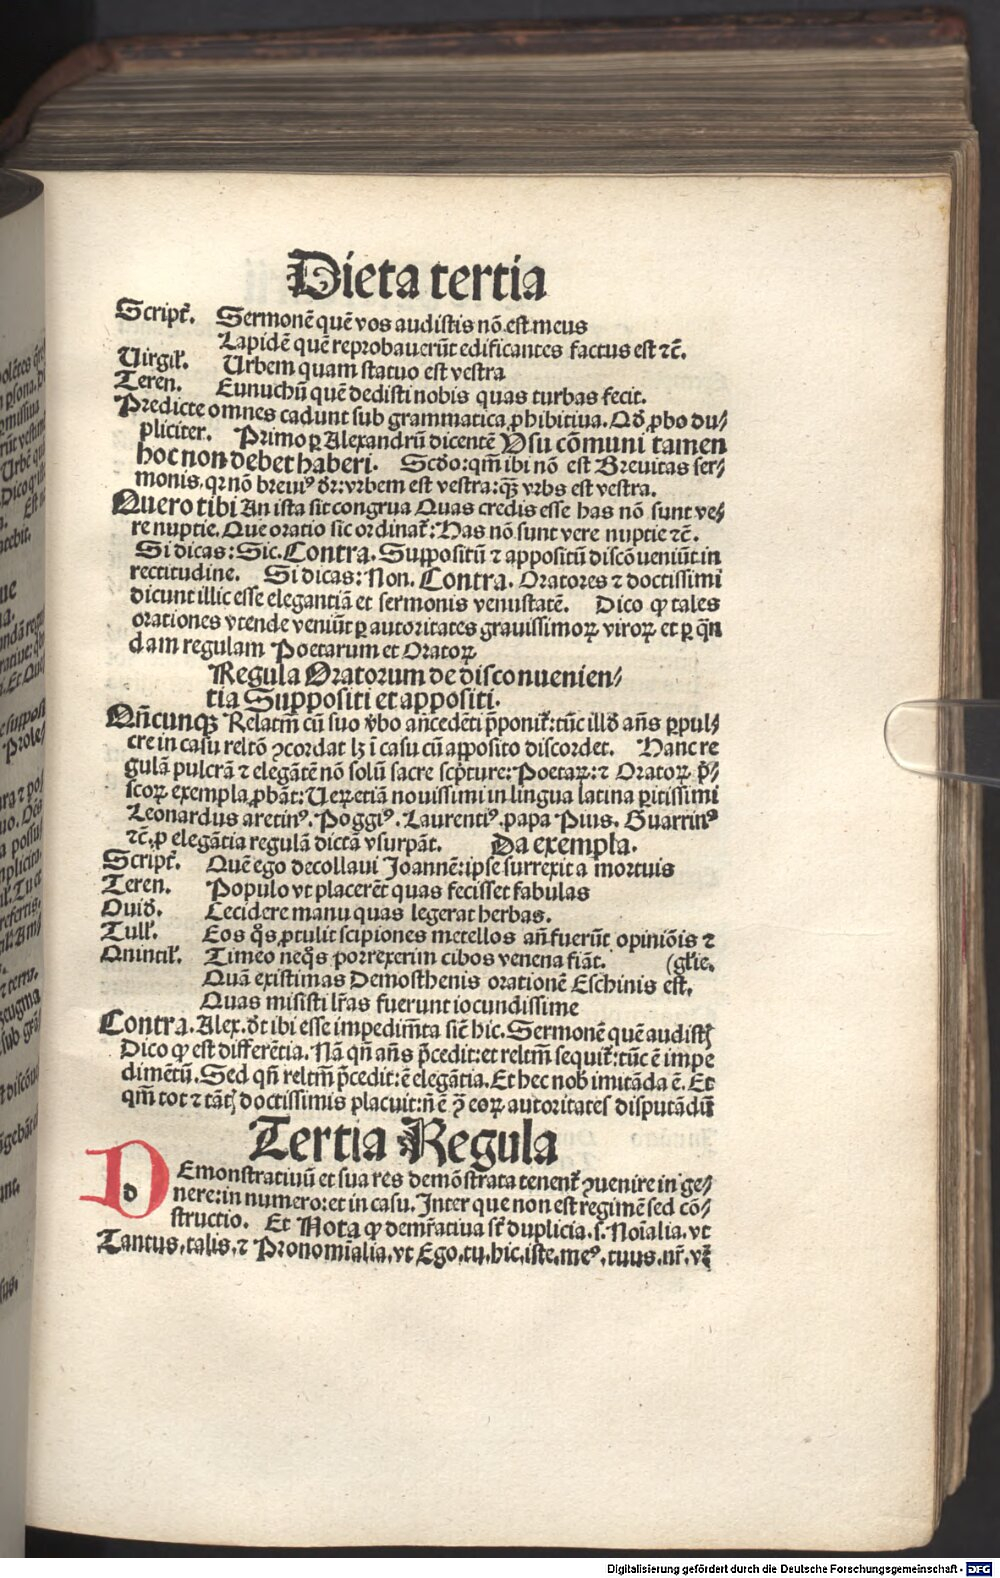 Dieta tertia
Script̃. Sermonē quē vos audistis nō est meus
Lapidē quē reprobauerūt edificantes factus est ⁊c̃.
Virgil̃. Urbem quam statuo est vestra
Teren. Eunuchū quē dedisti nobis quas turbas fecit.
Predicte omnes cadunt sub grammatica ꝓhibitiua. Qđ ꝓbo du/
pliciter. Primo ꝑ Alexandrū dicentē Usu cōmuni tamen
hoc non debet haberi. Scđo: qm̃ ibi nō est Breuitas ser/
monis, qꝛ nō breuiꝰ dr̃: vrbem est vestra: qꝫ vrbs est vestra.
Quero tibi An ista sit congrua Quas credis esse has nō sunt ve/
re nuptie. Que oratio sic ordinat̃: Has nō sunt vere nuptie ⁊c̃.
Si dicas: Sic. Contra. Suppositū ⁊ appositū discōueniūt in
rectitudine. Si dicas: Non. Contra. Oratores ⁊ doctissimi
dicunt illic esse elegantiā et sermonis venustatē. Dico ꝙ tales
orationes vtende veniūt ꝑ autoritates grauissimoꝝ viroꝝ et ꝑ qñ
dam regulam Poetarum et Oratoꝝ
Regula Oratorum de disconuenien/
tia Suppositi et appositi.
Qñcunqꝫ Relatm̃ cū suo v̾bo añcedēti p̄ponit̃: tūc illđ añs ꝑpul/
cre in casu reltō ꝯcordat lꝫ ī casu cū apposito discordet. Hanc re
gulā pulcrā ⁊ elegātē nō solū sacre scp̃ture: Poetaꝝ: ⁊ Oratoꝝ p̄/
scoꝝ exempla ꝓbāt: Ueꝝ etiā nouissimi in lingua latina ꝑitissimi
Leonardus aretinꝰ. Poggiꝰ. Laurentiꝰ. papa Pius. Guarrinꝰ
⁊c̃. ꝓ elegātia regulā dictā vsurpāt. Da exempla.
Script̃. Quē ego decollaui Joannē: ipse surrexit a mortuis
Teren. Populo vt placerēt quas fecisset fabulas
Ouid. Cecidere manu quas legerat herbas.
Tull̃. Eos q̊s ꝓtulit scipiones metellos añ fuerūt opiniōis ⁊
Quintil̃. Timeo neq̊s porrexerim cibos venena fiāt. (gl̃ie.
Quā existimas Demosthenis orationē Eschinis est.
Quas misisti l̃ras fuerunt iocundissime
Contra. Alex. đt ibi esse impedim̃ta sic̄ hic. Sermonē quē audistꝭ
Dico ꝙ est differētia. Nā qñ añs p̄cedit: et reltm̃ sequit̃: tūc ē impe
dimētū. Sed qñ reltm̃ p̄cedit: ē elegātia. Et hec nob̾ imitāda ē. Et
qm̃ tot ⁊ tātꝭ doctissimis placuit: ñ ē ꝯ̃ eoꝝ autoritates disputādū
Tertia Regula
DEmonstratiuū et sua res demōstrata tenent̃ ꝯuenire in ge/
d
nere: in numero: et in casu. Inter que non est regimē sed cō/
structio. Et Nota ꝙ demr̃atiua sũt duplicia. s. Noĩalia. vt
Tantus, talis, ⁊ Pronomĩalia, vt Ego, tu, hic, iste, meꝰ, tuus, nr̃, vr̃
Digitalisierung gefördert durch die Deutsche Forschungsgemeinschaft - DFG